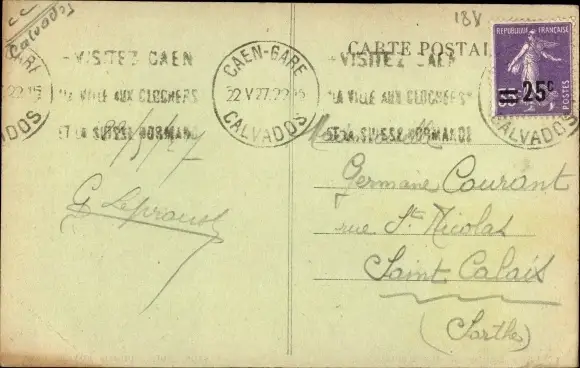 Calvados
18V
CARTE POSTAL
REPUBLIQUE FRANÇAISE
25c
POSTES
CAEN-GARE
22 V 27
CALVADOS
VISITEZ CAEN
"LA VILLE AUX CLOCHERS"
ET LA SUISSE NORMANDE
VISITEZ CAEN
"LA VILLE AUX CLOCHERS"
ET LA SUISSE NORMANDE
CALVADOS
22/5/27
G Leproust
Germaine Courant
rue St Nicolas
Saint Calais
(Sarthe)